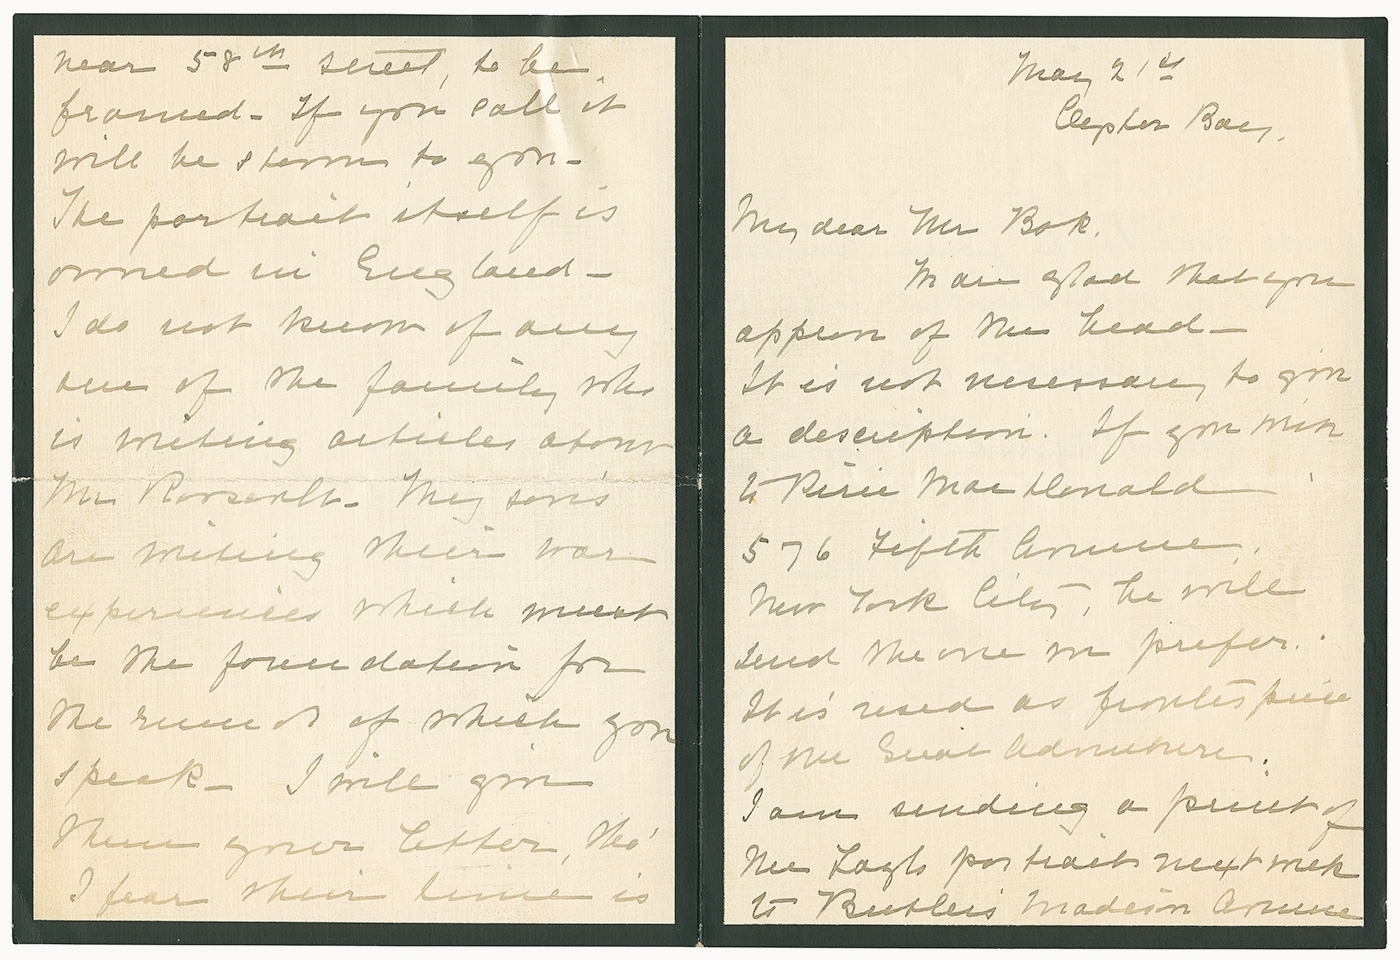 May 21st
Oyster Bay,
My dear Mr Bok.
I am glad that you
approve of the head—
It is not necessary to give
a description. If you write
to Pirie MacDonald
576 Fifth Avenue,
New York City, he will
send the one you prefer.
It is used as frontespiece
of the Great Adventure.
I am sending a print of
the Laszlo portrait next week
to Butler's Madison Avenue
near 58th street, to be
framed— If you call it
will be shown to you—
The portrait itself is
owned in England—
I do not know of any
one of the family who
is writing articles about
Mr Roosevelt— My son's
are writing their war
experiences which must
be the foundation for
the of which you
speak— I will give
them your letter, tho'
I fear their time is